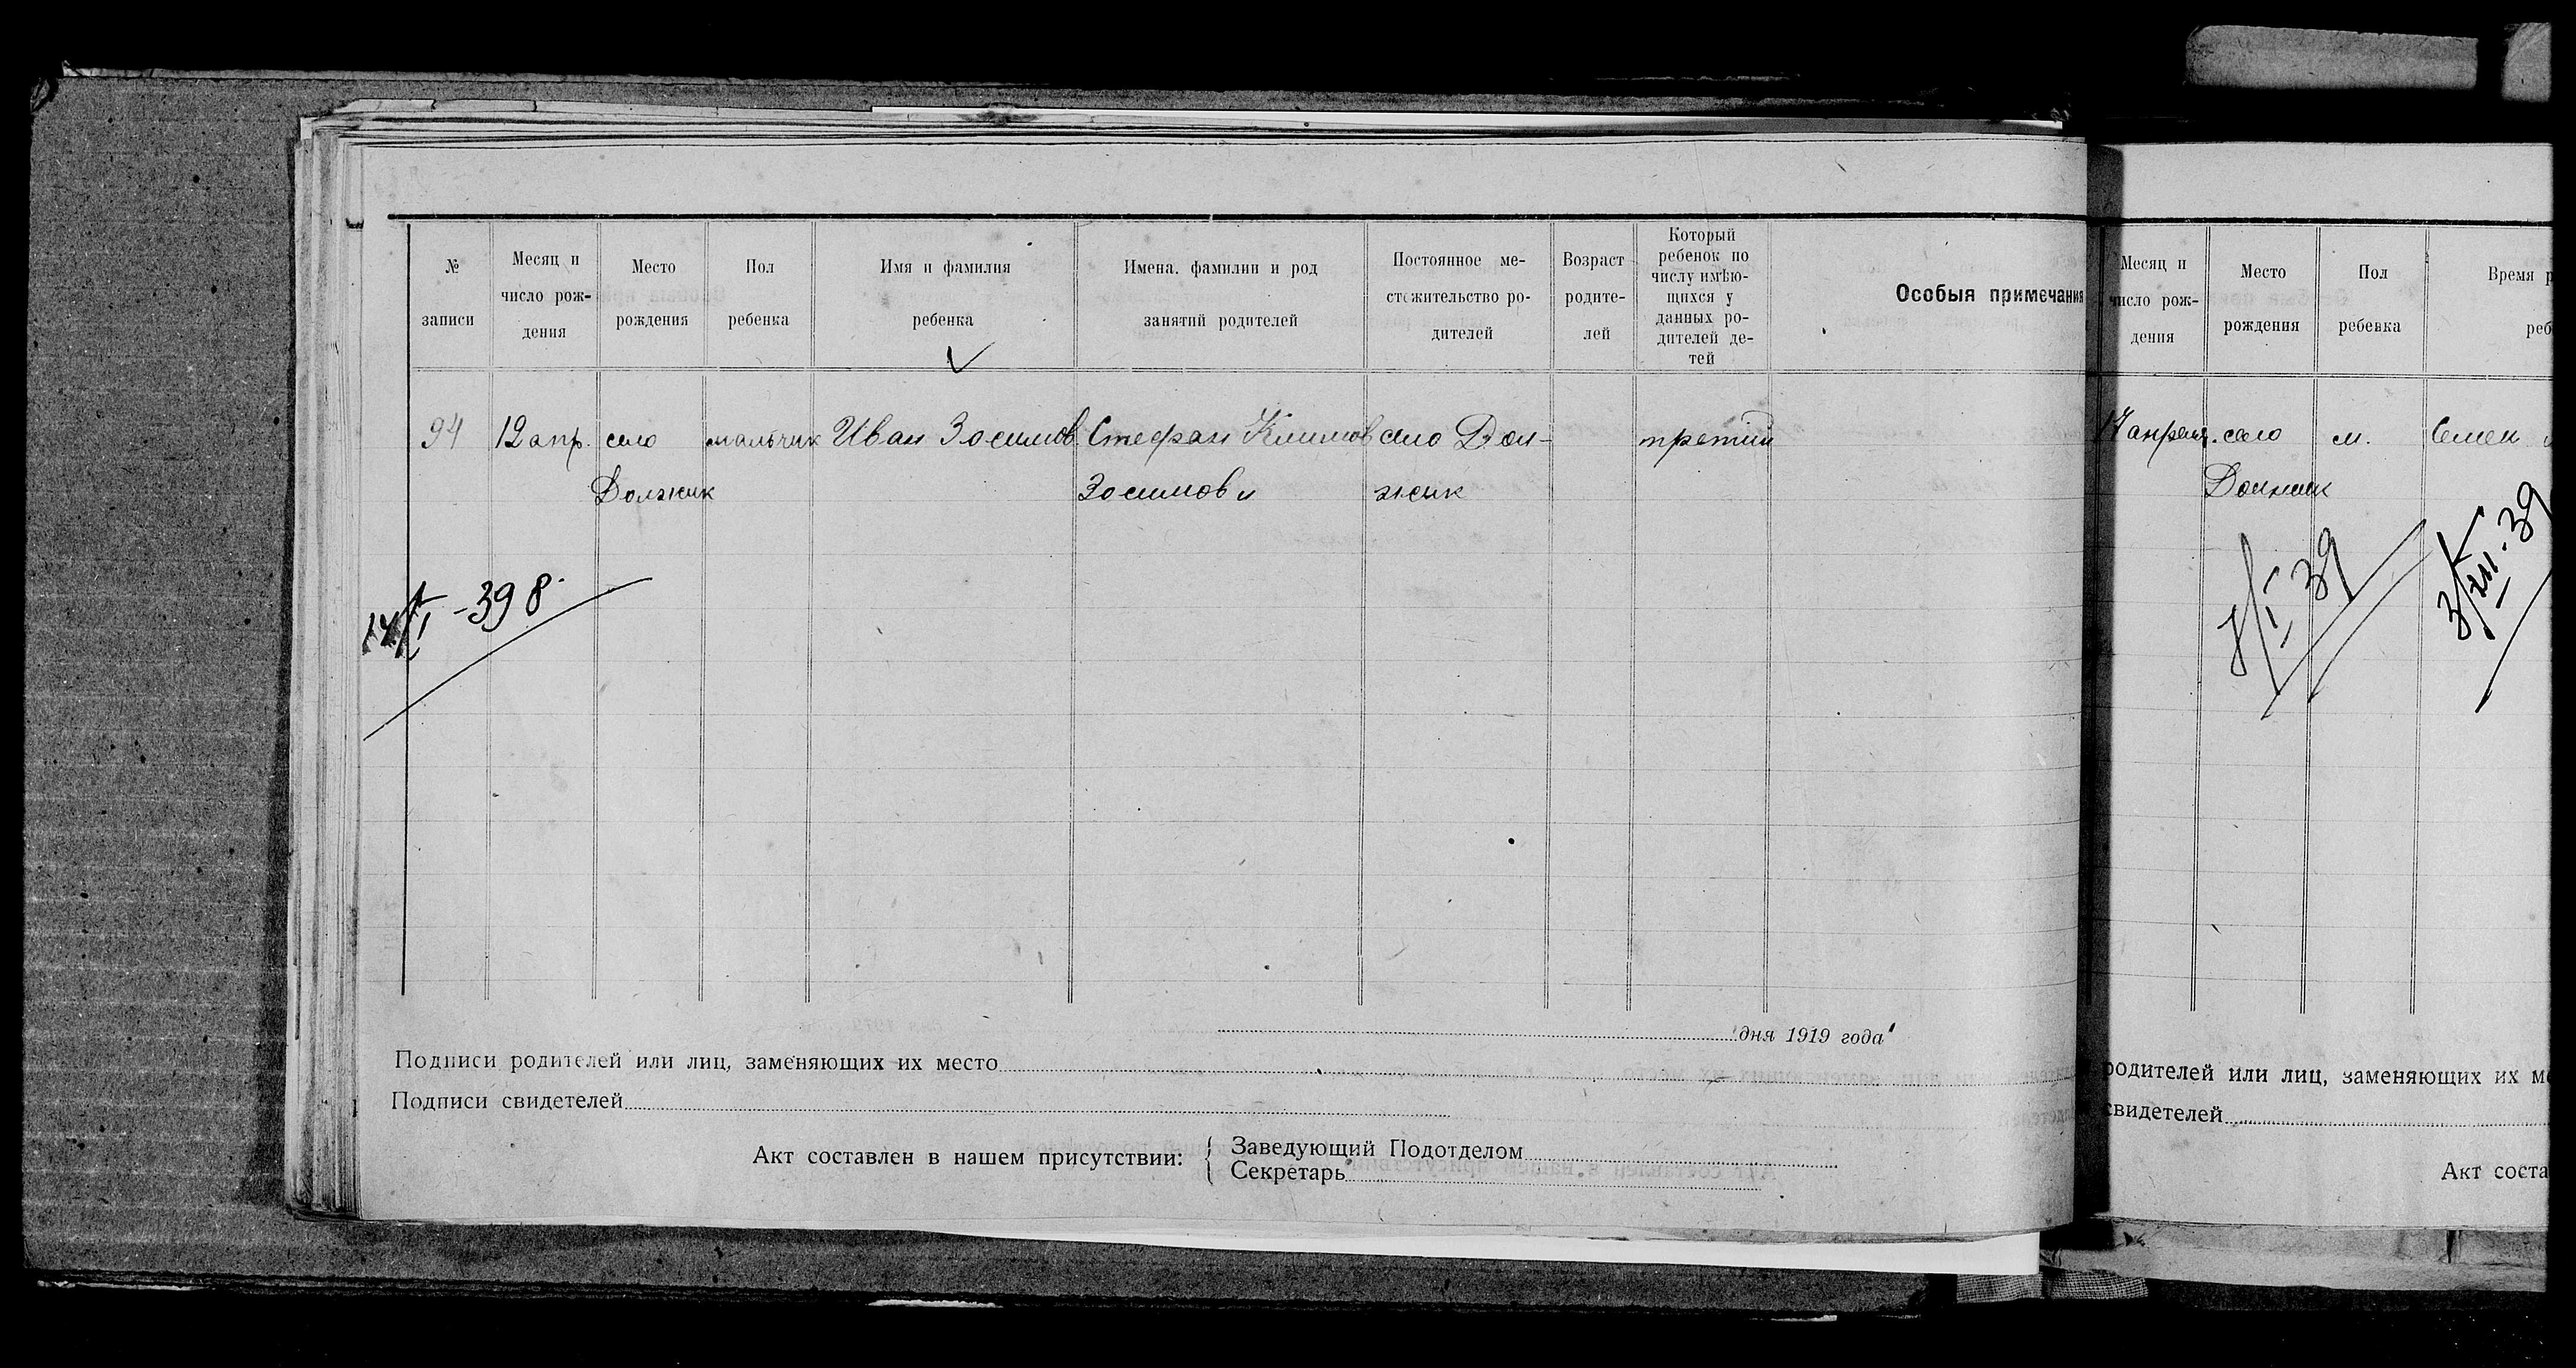 № записи
Месяц и число рождения
Место рождения
Пол ребенка
Имя и фамилия ребенка
Имена. фамилии и род занятий родителей
Постоянное местожительство родителей
Возраст родителей
Который ребенок по числу имѣющихся у данных родителей детей
Особыя примечания
94 12 апр. село мальчик Иван Зосимов Стефан Климов село Дол- третий
Должик Зосимов и жик
-39 8
дня 1919 года
Подписи родителей или лиц, заменяющих их место
Подписи свидетелей
Акт составлен в нашем присутствии:
Заведующий Подотделом
Секретарь
Месяц и
число рож-
дения
Место
рождения
Пол
ребенка
Время р
реб
17 апреля. село м. Семен
Должик
I 39
3/VII-39
родителей или лиц, заменяющих их ме
свидетелей
Акт соста